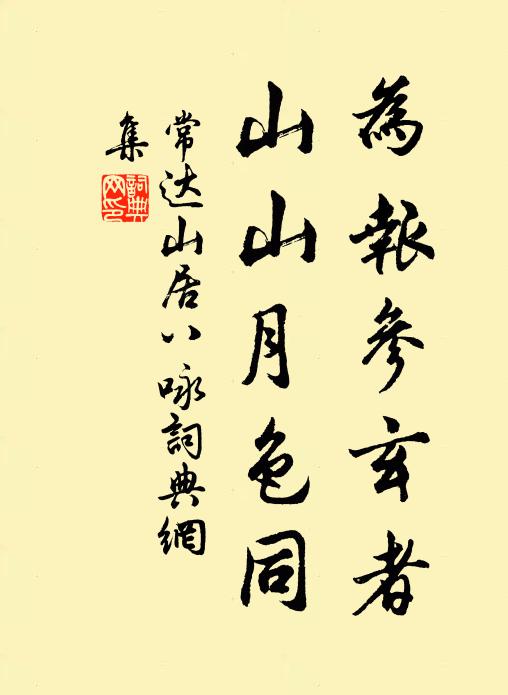 為報參玄者
山山月色同
常达山居八咏詞典網
集
詞典網印